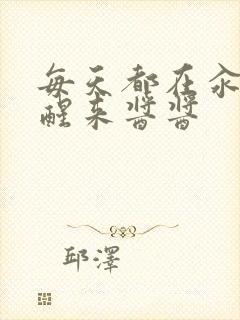 每天都在汆
醒来酱酱
邱澤